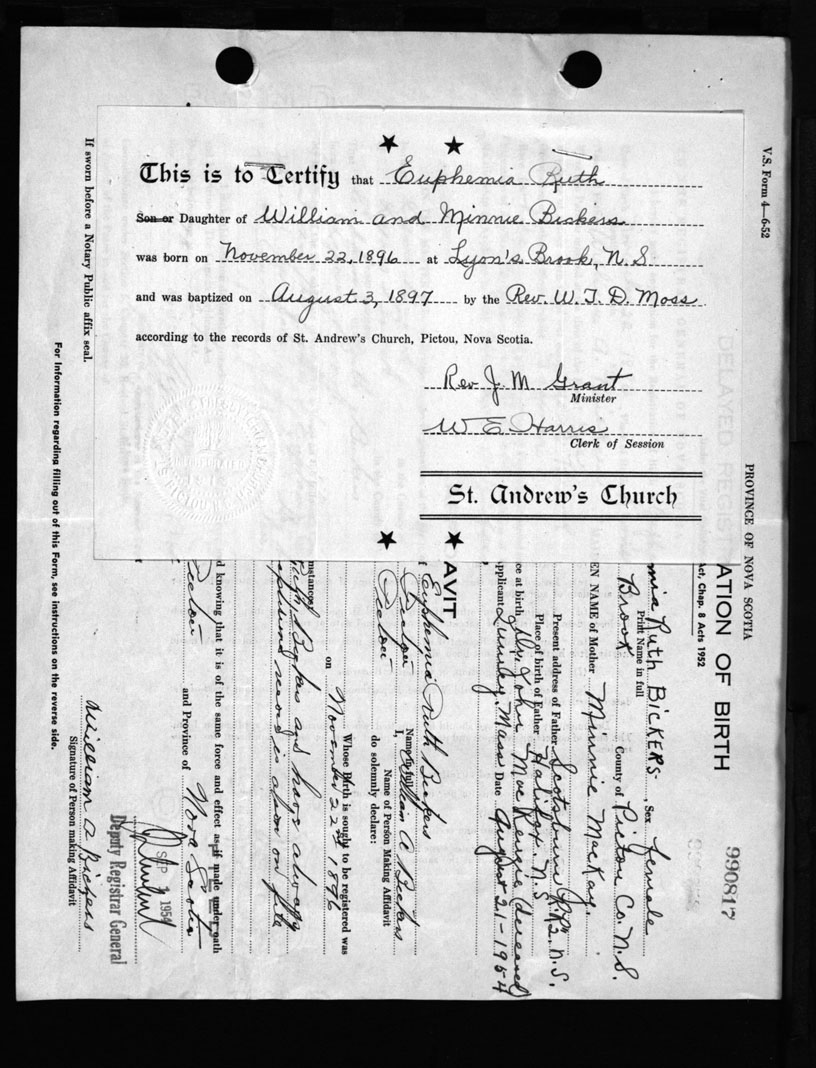 This is to Certify that Euphemia Ruth
Son or Daughter of William and Minnie Bickers
was born on November 22, 1896 at Lyon's Brook, N.S
and was baptized on August 3, 1897 by the Rev. W. T. D. Moss
according to the records of St. Andrew's Church, Pictou, Nova Scotia.
Rev J. M Grant
Minister
W E Harris
Clerk of Session
St. Andrew's Church
V.S. Form 4—6-52
PROVINCE OF NOVA SCOTIA
DELAYED REGISTR
ATION OF BIRTH
990817
Act, Chap. 8 Acts 1952
mia Ruth BICKERS Sex Female
Print Name in full
Brook County of Pictou Co. N.S.
EN NAME of Mother Minnie MacKay.
Present address of Father Scotsburn R.R.2. N.S.
Place of birth of Father Halifax. N.S
ce at birth Dr. John Mac Kenzie deceased
pplicant Mass Date August 21-1954
AVIT
Euphemia Ruth Bickers
Name in full
Pictou I, William A Bickers
Name of Person Making Affidavit
Pictou do solemnly declare:
Whose Birth is sought to be registered was
on November 22nd 1896
mstances)
Bickers and have always
baptismal record is also on file
d knowing that it is of the same force and effect as if made under oath
Pictou and Province of Nova Scotia
SEP 1 1954
Deputy Registrar General
William A Bickers
Signature of Person making Affidavit
If sworn before a Notary Public affix seal.
For information regarding filling out of this Form, see instructions on the reverse side.